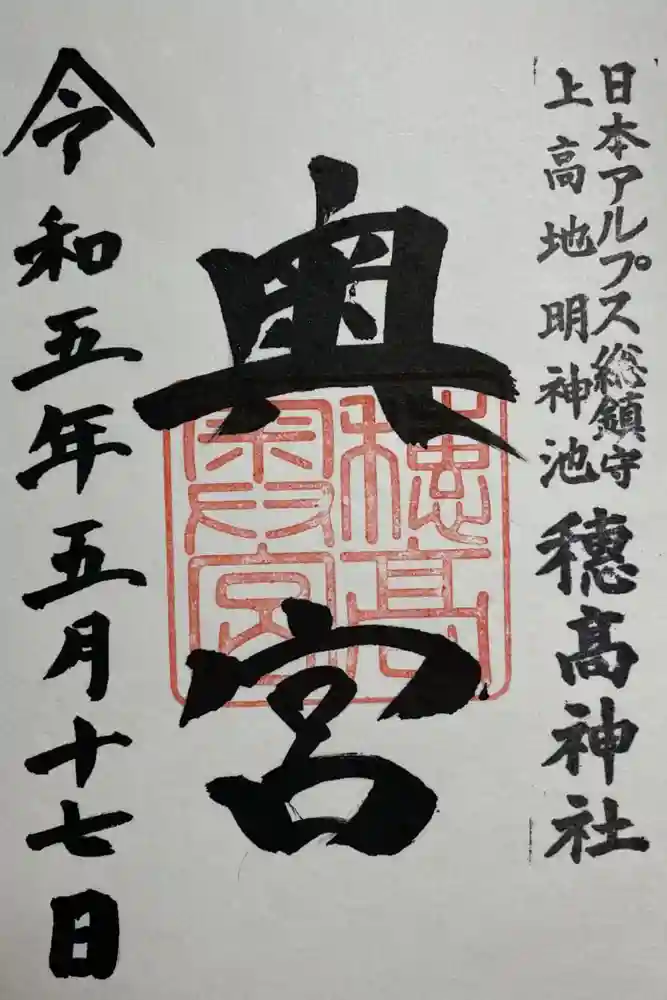 日本アルプス総鎮守
上高地明神池
穂高神社
奥宮
穂高奥宮
令和五年五月十七日